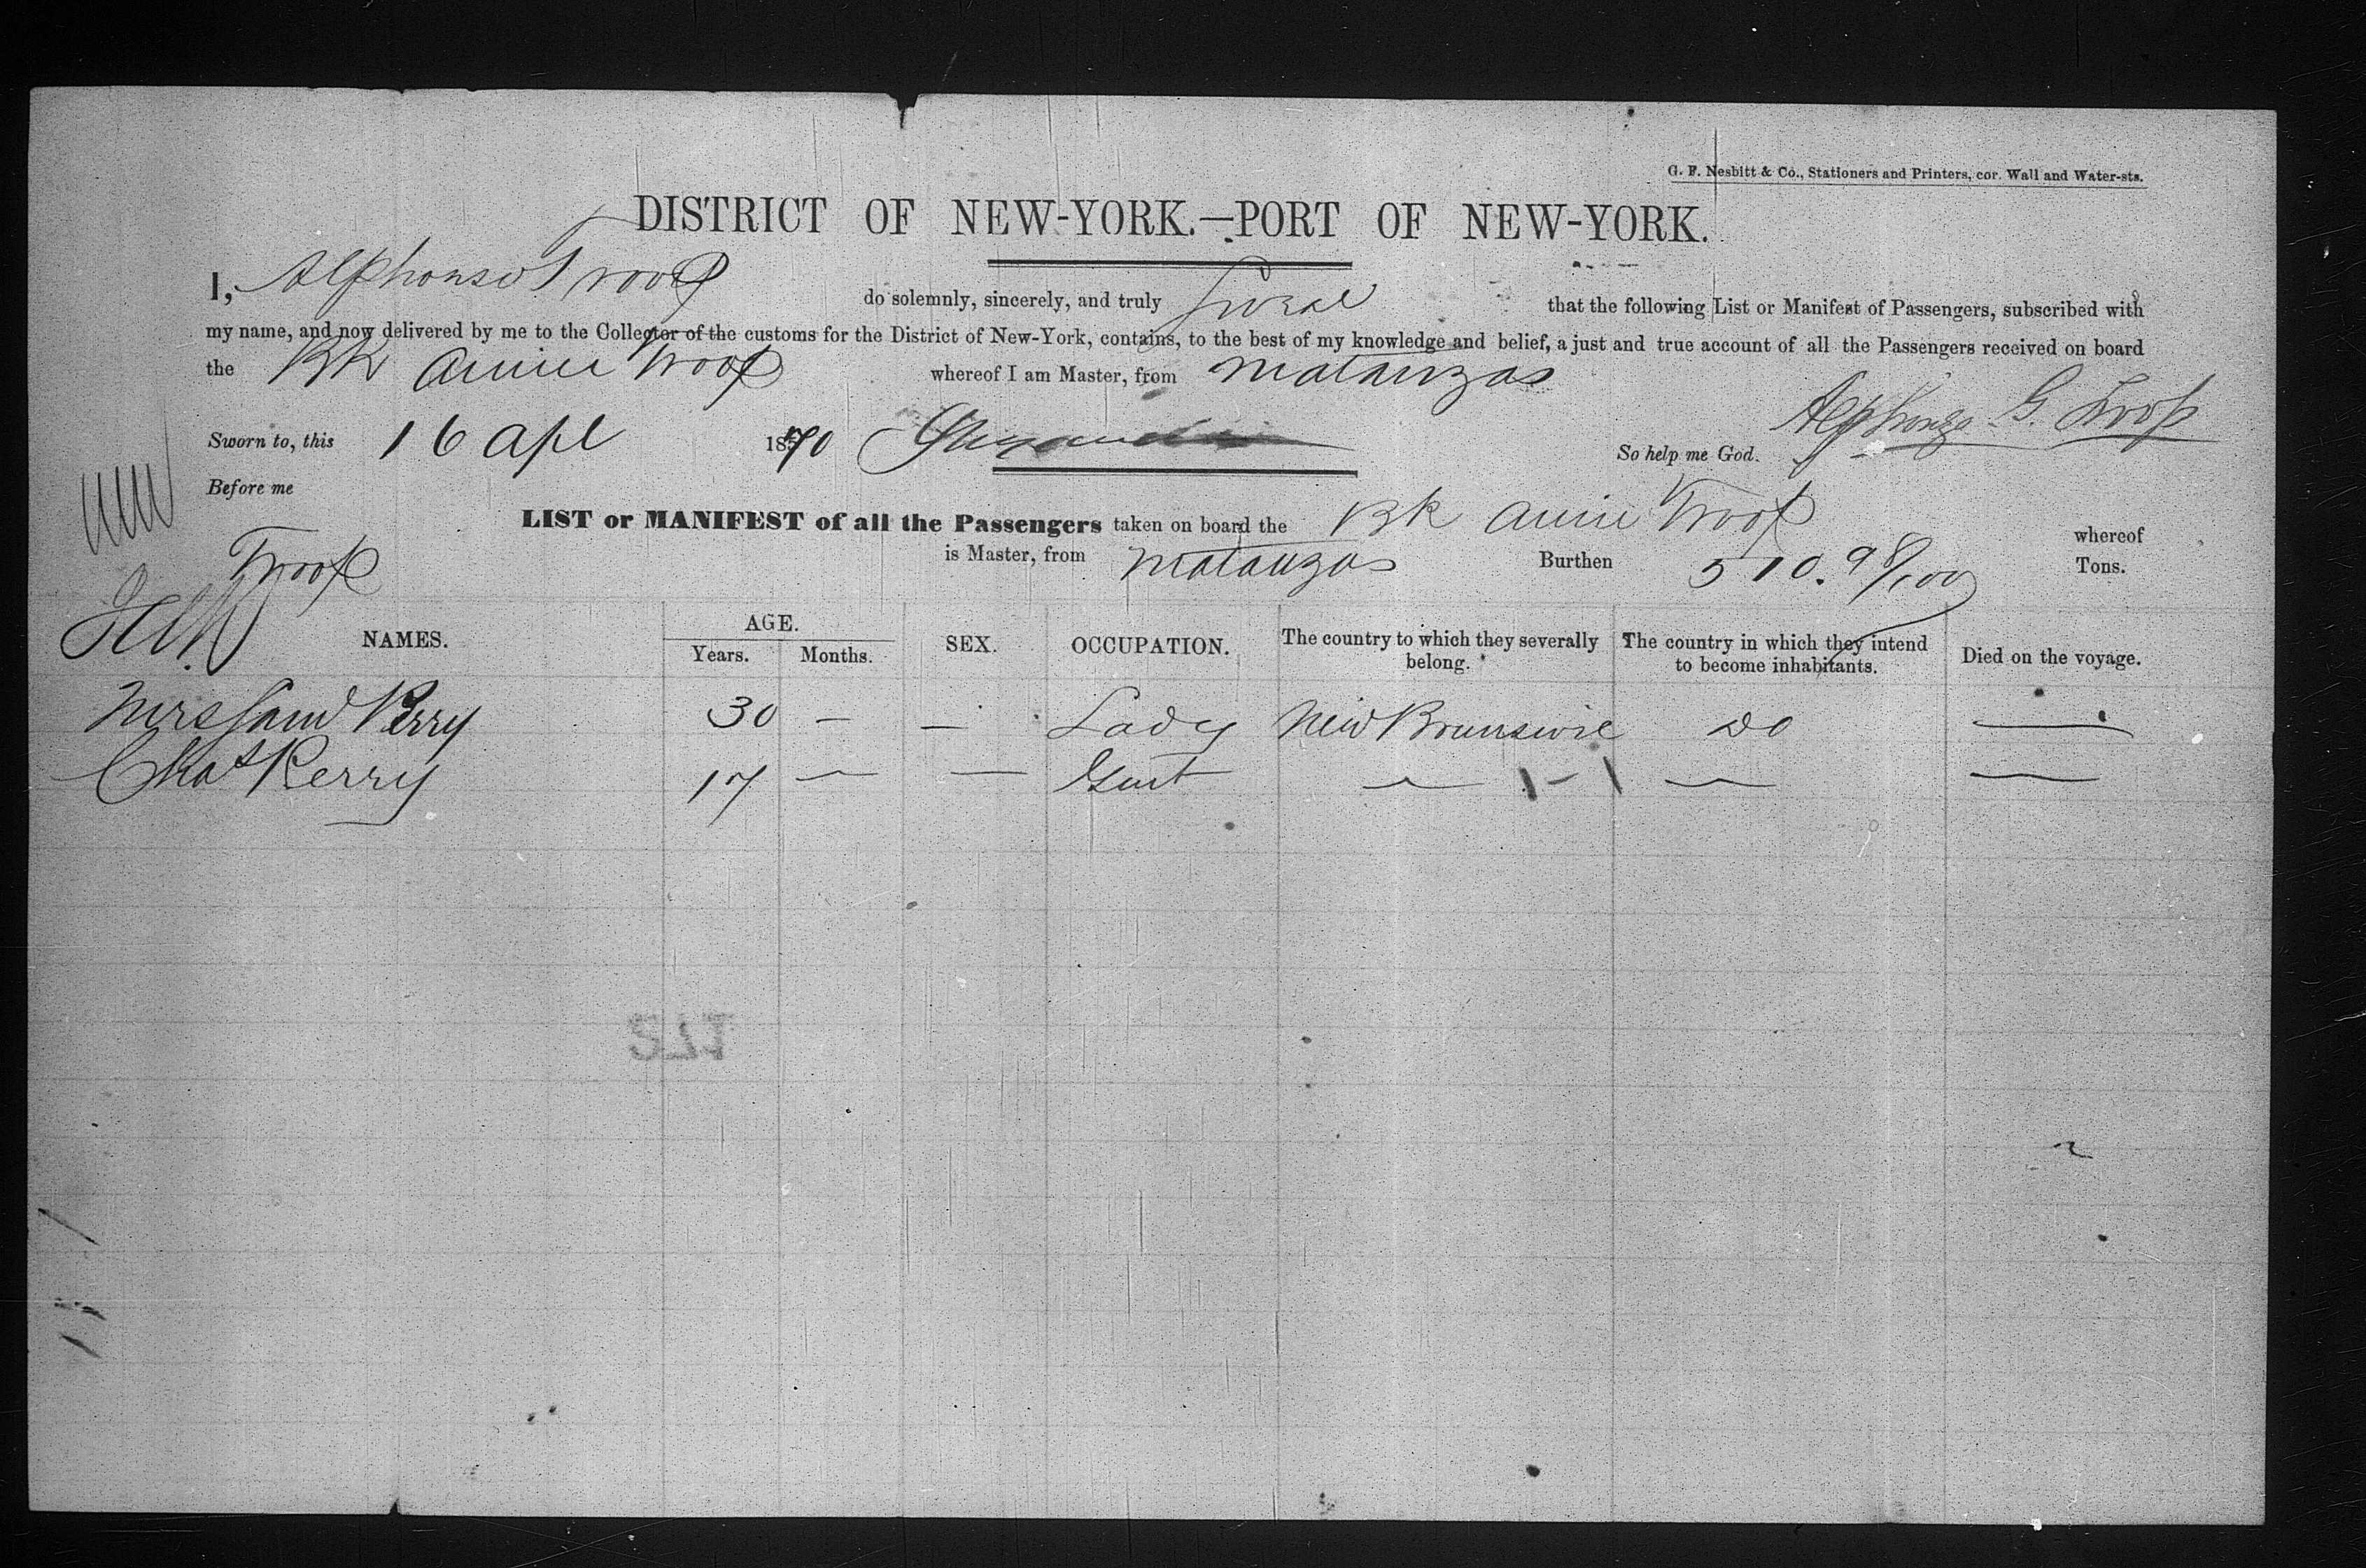 G. F. Nesbitt & Co., Stationers and Printers, cor. Wall and Water-sts.
DISTRICT OF NEW-YORK.—PORT OF NEW-YORK.
I, Alphonso Troop do solemnly, sincerely, and truly Swear that the following List or Manifest of Passengers, subscribed with
my name, and now delivered by me to the Collector of the customs for the District of New-York, contains, to the best of my knowledge and belief, a just and true account of all the Passengers received on board
the Bk Annie Troop whereof I am Master, from Matanzas
Sworn to, this 16 Apl 1870 So help me God. Alphonzo G. Troop
Before me
LIST or MANIFEST of all the Passengers taken on board the Bk Annie Troop whereof
Troop is Master, from Matanzas Burthen 510.98/100 Tons.
NAMES. AGE. Years. Months. SEX. OCCUPATION. The country to which they severally belong. The country in which they intend to become inhabitants. Died on the voyage.
Mrs Perry 30 — — Lady New Brunswic Do —
Chas Perry 17 — — Gent — — —